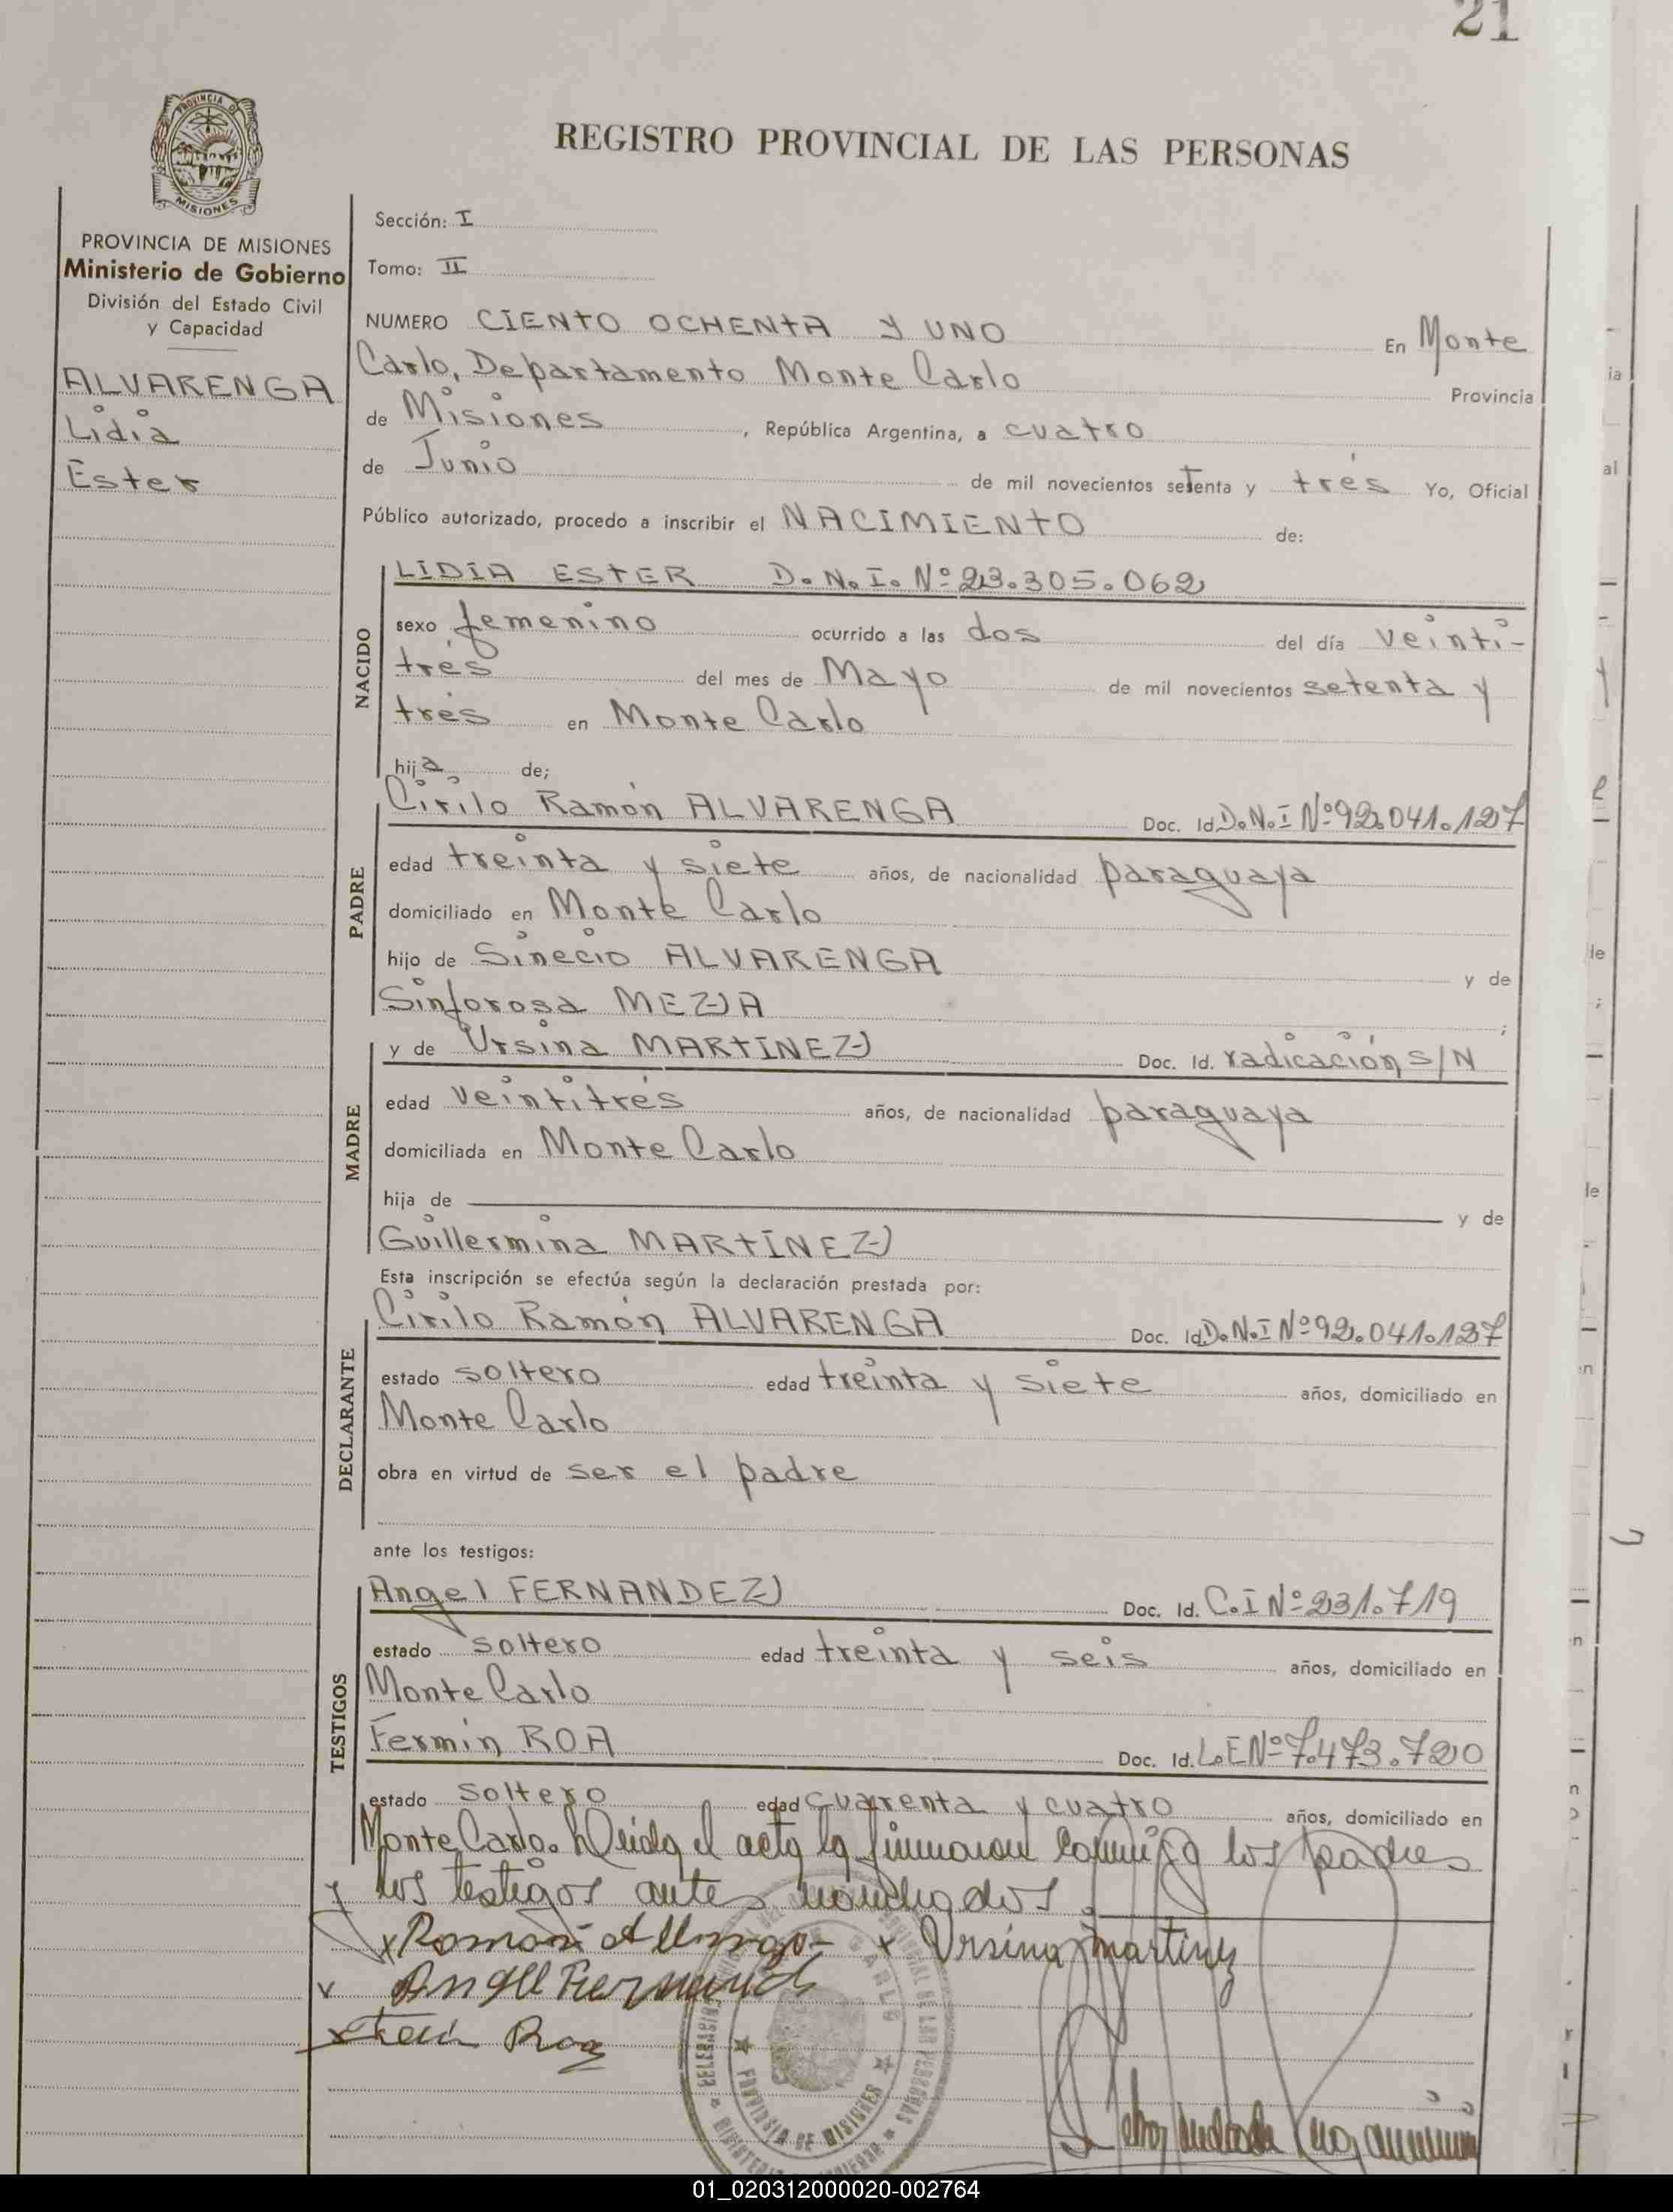 21
PROVINCIA DE
MISIONES
REGISTRO PROVINCIAL DE LAS PERSONAS
PROVINCIA DE MISIONES
Ministerio de Gobierno
División del Estado Civil
y Capacidad
ALVARENGA
Lidia
Ester
Sección: I
Tomo: II
NUMERO CIENTO OCHENTA Y UNO En Monte
Carlo, Departamento Monte Carlo Provincia
de Misiones, República Argentina, a cuatro
de Junio de mil novecientos setenta y trés Yo, Oficial
Público autorizado, procedo a inscribir el NACIMIENTO de:
NACIDO
LIDIA ESTER D.N.I. Nº 23.305.062
sexo femenino ocurrido a las dos del día veinti-
trés del mes de Mayo de mil novecientos setenta y
trés en Monte Carlo
hija de;
PADRE
Cirilo Ramón ALVARENGA Doc. Id. D.N.I Nº 92.041.127
edad treinta y siete años, de nacionalidad paraguaya
domiciliado en Monte Carlo
hijo de Sinecio ALVARENGA y de
Sinforosa MEZA ;
MADRE
y de Ursina MARTINEZ Doc. Id. radicación S/N
edad veintitrés años, de nacionalidad paraguaya
domiciliada en Monte Carlo
hija de y de
Guillermina MARTÍNEZ
Esta inscripción se efectúa según la declaración prestada por:
DECLARANTE
Cirilo Ramón ALVARENGA Doc. Id. D.N.I Nº 92.041.127
estado soltero edad treinta y siete años, domiciliado en
Monte Carlo
obra en virtud de ser el padre
ante los testigos:
TESTIGOS
Angel FERNANDEZ Doc. Id. C.I Nº 231.719
estado soltero edad treinta y seis años, domiciliado en
Monte Carlo
Fermin ROA Doc. Id. L.E Nº 7.473.720
estado soltero edad cuarenta y cuatro años, domiciliado en
Monte Carlo. Leida el acta la firmaron conmigo los padres
y los testigos antes nombrados.
x Ramon x Ursina martinez
Angel
x Roa
PROVINCIA DE MISIONES
01_020312000020-002764